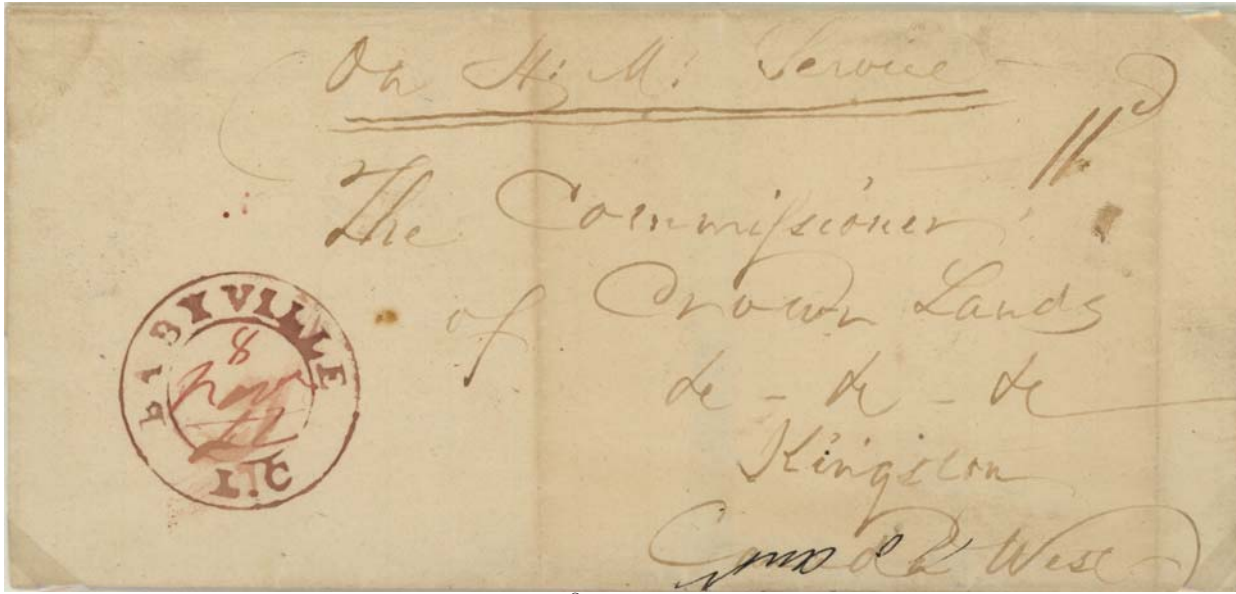 On H: M: Service
11d
The Commissioner
of Crown Lands
&c - &c - &c
Kingston
Canada West
8
Nov
L:C